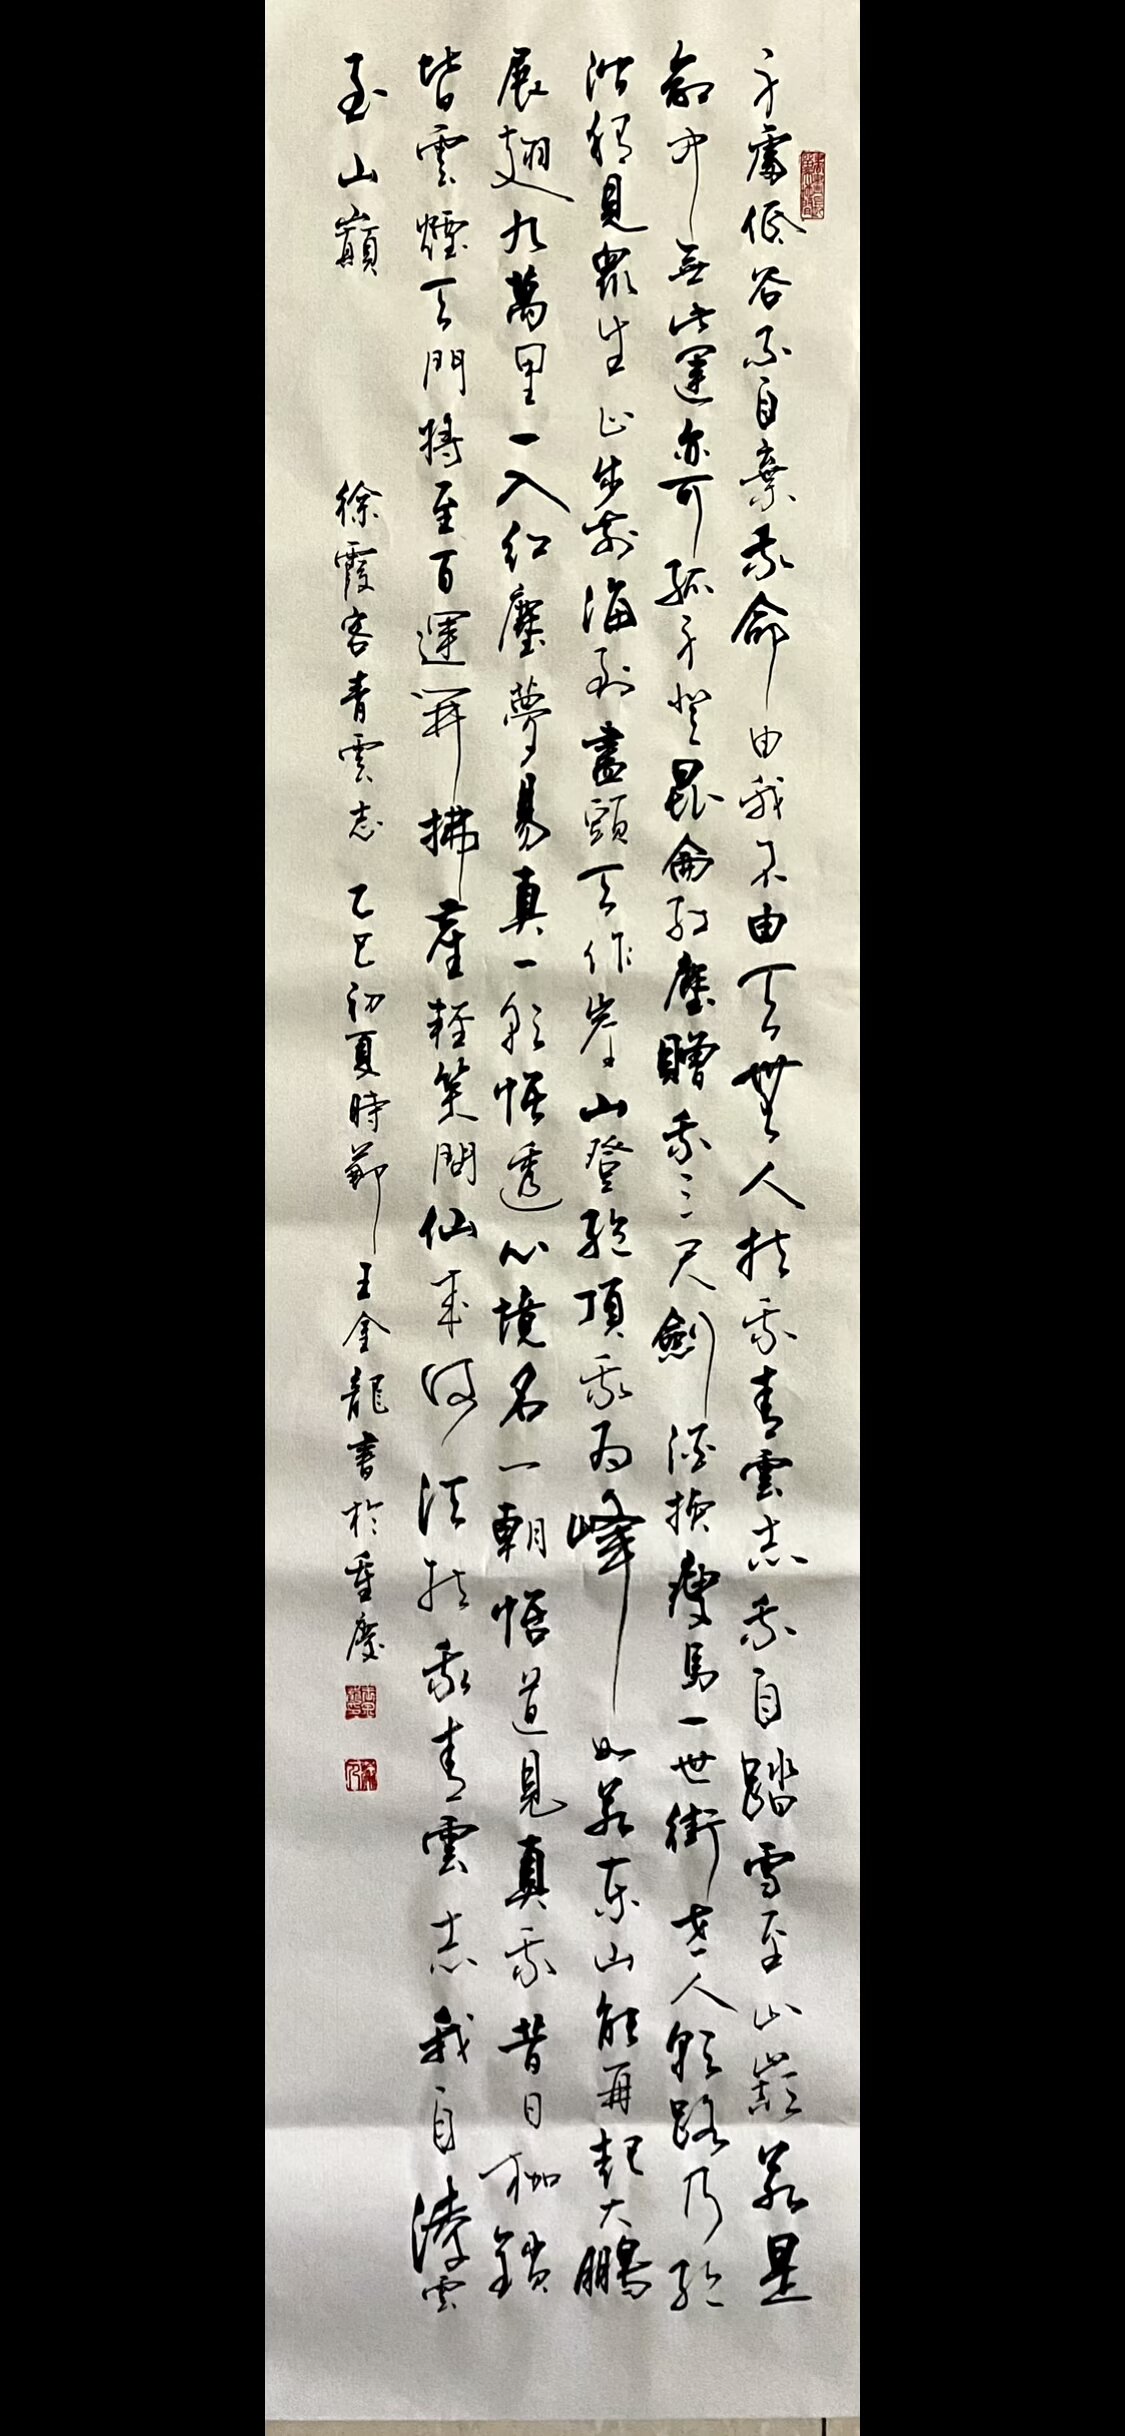 身處低谷不自棄我命由我不由天無人扶我青雲志我自踏雪至山巔若是
命中無此運亦可孤身登昆侖紅塵贈我三尺劍酒換瘦馬一世街世人朝路乃紅
塵稍見眾生止步前海到盡頭天作岸山登絕頂我為峰如若東山能再起大鵬
展翅九萬里一入紅塵夢易真一朝悟透心境名一朝悟道見真我昔日枷鎖
皆雲煙天門將至百運開拂塵輕笑問仙來何須扶我青雲志我自凌雲
至山巔 徐霞客青雲志 乙巳初夏時節 王金龍書於重慶